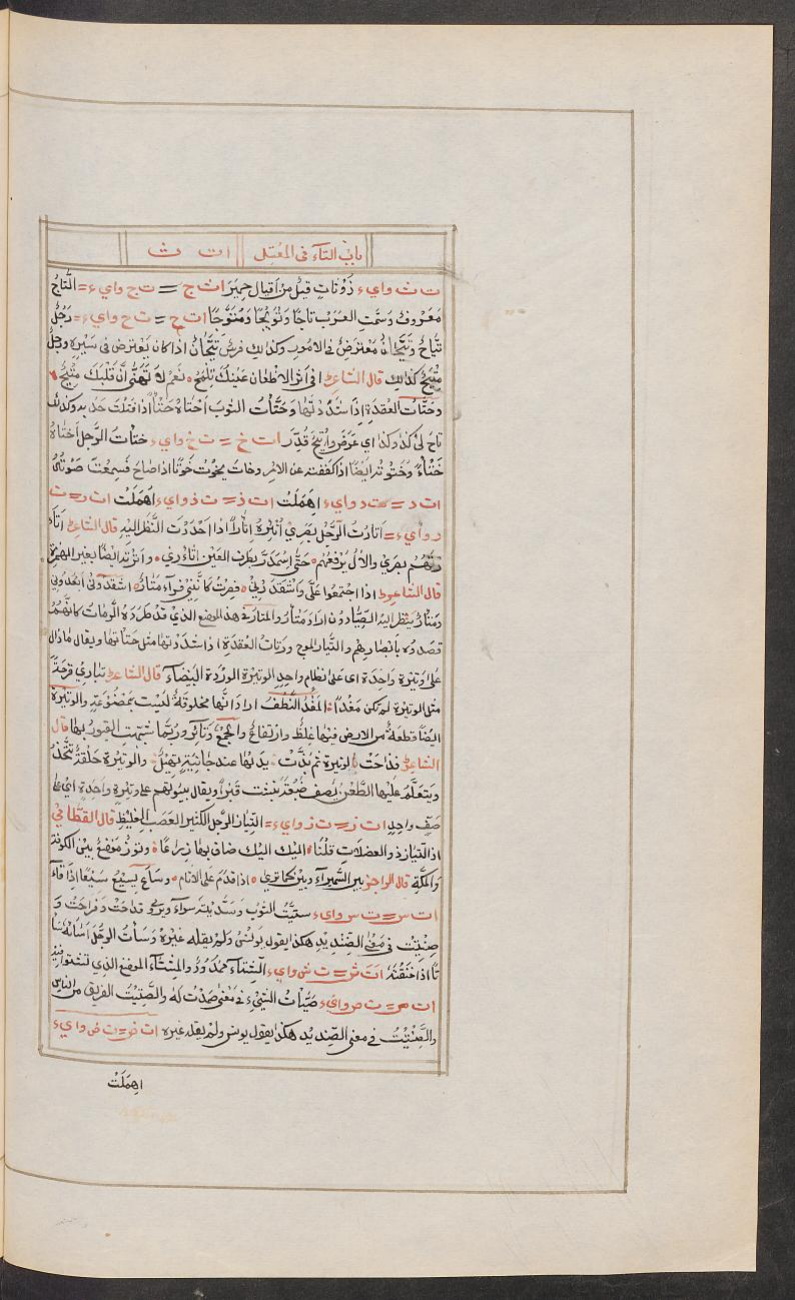 باب التآء فى المعتل ات ث
ت ث واي ء ذُو ثاتٍ قيلٌ من اقيال حِميَر ات ج = ت ج واي ء = التَّاجُ
مَعروفٌ وَسَمَّتِ العَرَبُ تاجًا وَتُوَيجًا وَمُتَوَّجًا ات ح = ت ح واي ء = رَجُلٌ
تَيَّاحٌ وتَيَّحَانٌ مُعترَضٌ فى الامُور وكذالِكَ فرسٌ تَيَّحَانٌ اذا كان يَعْترض فى سَيرِه ورجلٌ
مِتْيَحٌ كذالِكَ قال الشاعرُ افى اثر الاظعان عَينُكَ تَلمَحُ نَعَمْ لا تَهَنَّى اَنَّ قَلْبَكَ مِتْيَحٌ
وحَتَّأتُ العُقدَةَ اذَا شدَدتَها وَحَتَأتُ الثوبَ اَحْتاهُ حَتْأً اذا فتلتَ
تاحَ لى كذا وكذا اى عَرَضَ وأُتِيحَ قُدِّرَ ات خ = ت خ واي ء ختأتُ الرَّجلَ أختأهُ
خَتْأً وَخَتَوتُه ايضًا اذا كففته عن الامْر وخاتَ يخوتُ خَوْتًا اذا صاحَ فَسمِعتَ صَوتَهُ
ات د = ت د واي ء اهمَلتْ ات ذ = ت ذ واي ء اهمَلتْ ات ر = ت
ر واي ء = اَتأرْتُ الرَّجُل بَصَرِيْ اُتئِرُهُ إتآرًا اذا اَحْدَدتَ النَّظَرَ اليه قال الشاعرُ اَتأر
تُهُم بصَرِيْ والآلُ يَرْفَعُهم حَتَّى اسْمَدَرَّ بطَرفِ العَيْن اتْآرِي واَتَرْتُه ايضًا بغير الهَمْزِ
قال الشاعرُ اذا اجتمعُوا عَلَيَّ وَاَشقَذونِيْ فصِرْتُ كأنَّنِيْ فَرَأٌ مُتارُ اشقَذونى ابعَدُونِي
وَمُتارٌ يَنظر اليه الصَّيَّادون ارادَ مُتأرٌ والمتار فى هذا الموضع الذي قد طَرَدَهُ الرُّمَاة كأنَّهُم
قصَدوه بابصارِهِم والتَّيارُ الموج ورَتأتُ العُقدَةَ اذا شدَدتَها مثل حَتأتها ويقال ما زال
على وَتيْرَةٍ وَاحِدَةٍ اى على نظامٍ واحِدٍ الوَتيرَةُ الوَرْدَةُ البَيضآءُ قال الشاعرُ تبارِيْ قرحَةً
مثلَ الوتيرةِ لم تكن مَغدًا المَغْدُ النَّتْفُ ارادَ انَّها مخلوقةٌ ليست بمَصنُوعَةٍ والوتيرَةُ
ايضًا قطعةٌ من الارض فيْها غِلَظٌ وارْتفاعٌ والجمعُ وَتآئِر ورُبَّما شُبِّهَت القبور بها قال
الشاعرُ فذاحَتْ بالوتيرَةِ ثم بَذَّتْ يدَيْها عند جانِبِها تَهيلُ والوَتيْرَةُ حَلقةٌ تُتَّخَذُ
وَيُتَعلَّمُ عليْها الطَّعْنُ يَصف ضَبُعًا نَبشت قَبْرًا ويقال بيُوتهم على وتيْرَةٍ واحِدَةٍ اى على
صَفٍ واحِدٍ ات ز = ت ز واي ء = التيَّازُ الرَّجلُ الكثيرُ العَصَبِ الغَليظُ قال القطَامىُّ
اذا التيَّازُ ذو العضلاتِ قلنا اليكَ اليكَ ضاقَ بها ذِراعًا وتوزٌ مَوضِعٌ بيْن الكوفة
وَالمَكَّةِ قال الراجزُ بين السُّمَيرَآءِ وبيْن تُوزِ
ات س = ت س واي ء سَتَيتُ الثوبَ وَسَدَيتُه سواءٌ
صِتِيتٌ فى مَعْنى الصِّنديْد هكذا يقول يونُسُ ولم يقله غيرُه وَسَأتُ الرجُلَ
تًا اذا خَنَقْتَهُ ات ش = ت ش واي ء الشِتآءُ ممدُودٌ والمِشْتآءُ الموضعُ الذي تشتوا فيه
ات ص = ت ص واي ء صَتَأتُ الشيْءَ فى مَعْنى صَمَدْتُ لَهُ والصَّتِيْتُ الفَريق من الناس
والصِّنتِيْتُ فى معنى الصِّنديد هكذا يقول يونس ولم يقله غيره ات ض = ت ض واي ء
اهمَلَتْ